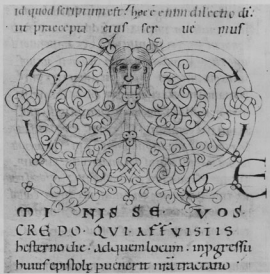 id quod scriptum est · hęc enim dilectio di·
ut pręcepta eius ser ue mus
M E
MI NIS SE VOS·
CREDO· QUI AFFUISTIS
hesterno die· ad quem locum in pgressu
huius epistolę